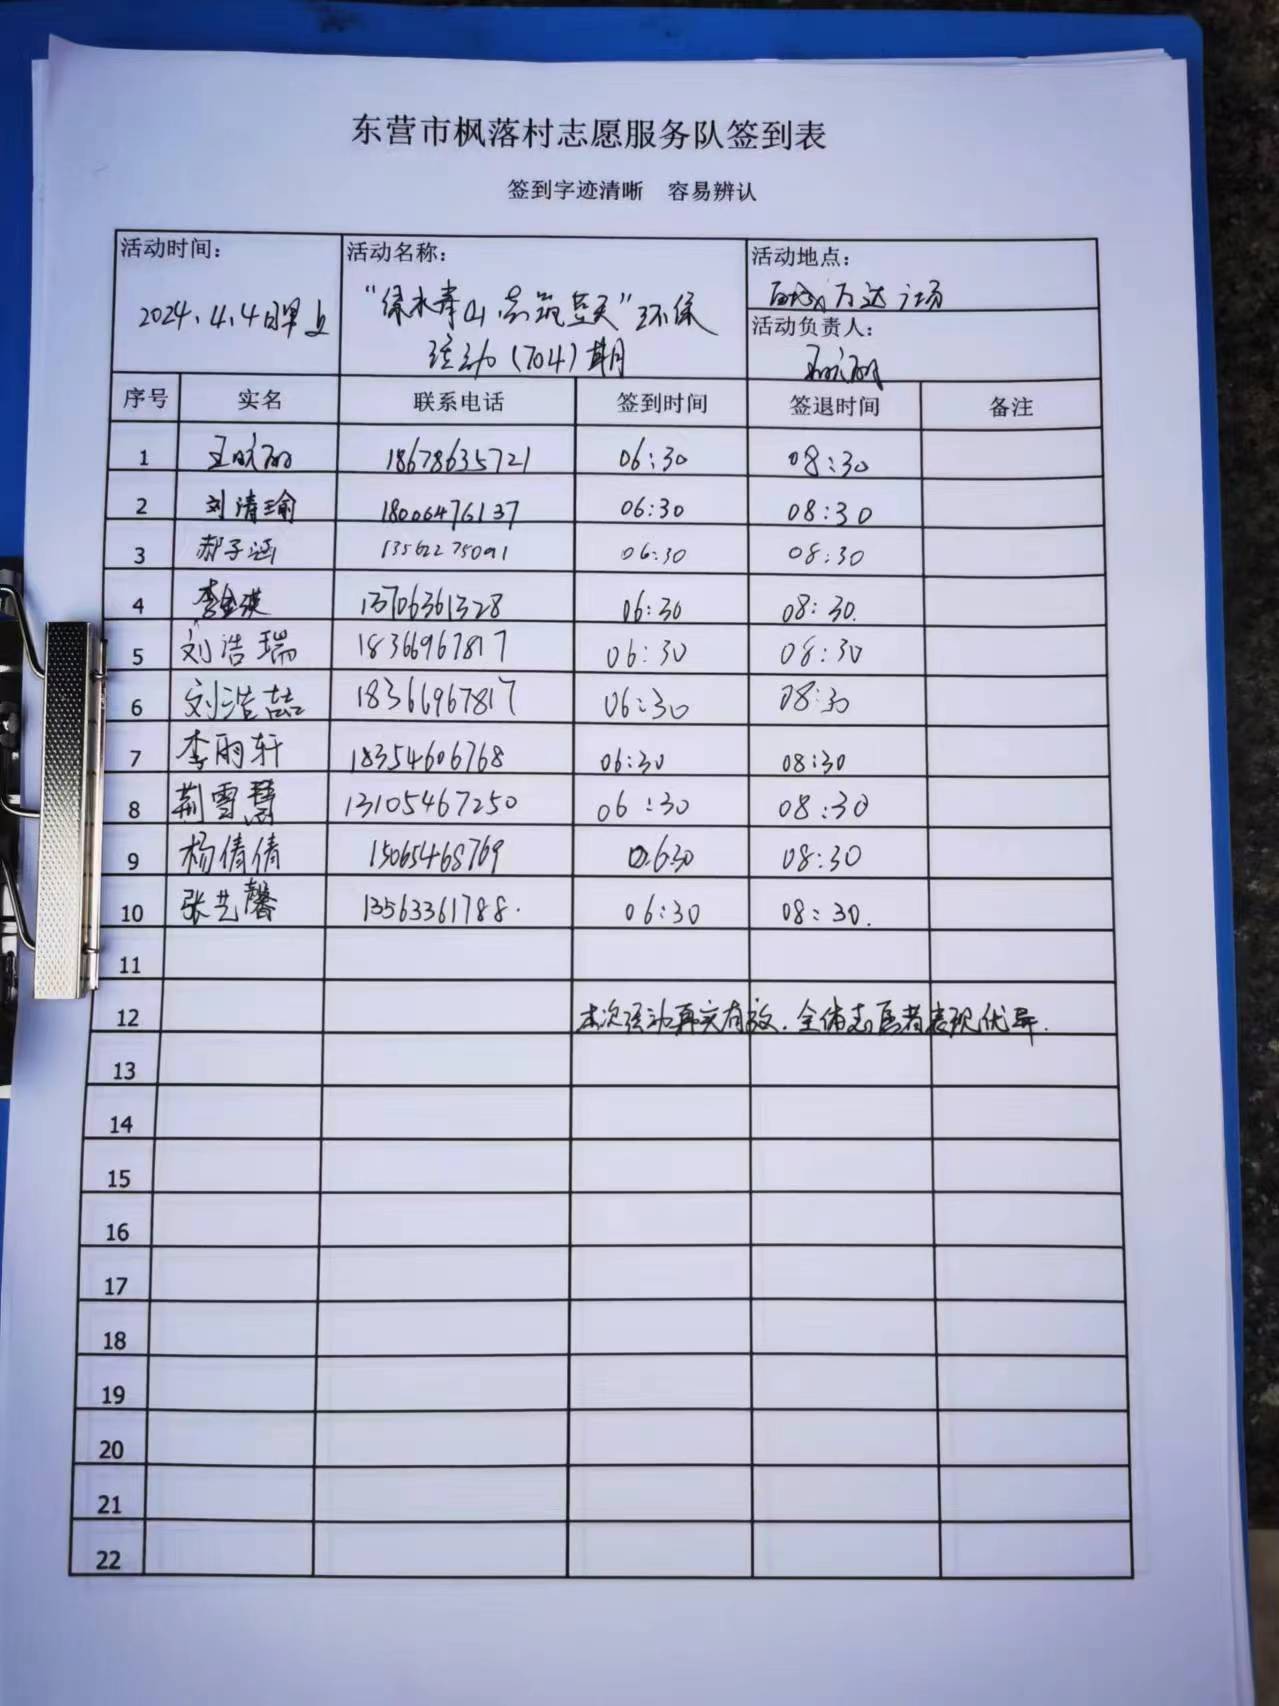 东营市枫落村志愿服务队签到表
签到字迹清晰 容易辨认
活动时间： 活动名称： 活动地点：
2024.4.4日早上 “绿水青山,共筑蓝天”环保 西城万达广场
活动(704)期 活动负责人：
序号 实名 联系电话 签到时间 签退时间 备注
1 18678635721 06:30 08:30
2 刘清瑜 18006476137 06:30 08:30
3 郝子涵 13562275091 06:30 08:30
4 李金洪 13706361328 06:30 08:30.
5 刘浩瑞 18366967817 06:30 08:30
6 刘浩喆 18366967817 06:30 08:30
7 李雨轩 18354606768 06:30 08:30
8 荆雪慧 13105467250 06:30 08:30
9 杨倩倩 15065468769 06:30 08:30
10 张艺馨 13563361788. 06:30 08:30.
11
12 本次活动真实有效.全体志愿者表现优异.
13
14
15
16
17
18
19
20
21
22